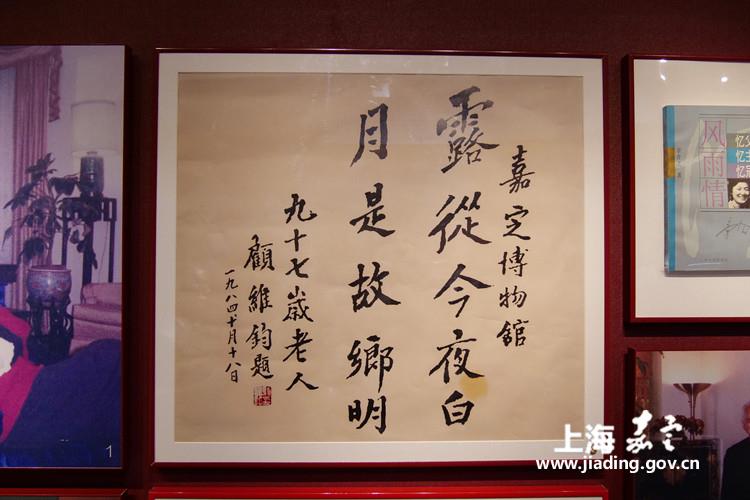 嘉定博物館
露從今夜白
月是故鄉明
九十七歲老人
顧維鈞題
一九八四十月十八日
风雨情
忆父
忆主
1
上海嘉定
www.jiading.gov.cn